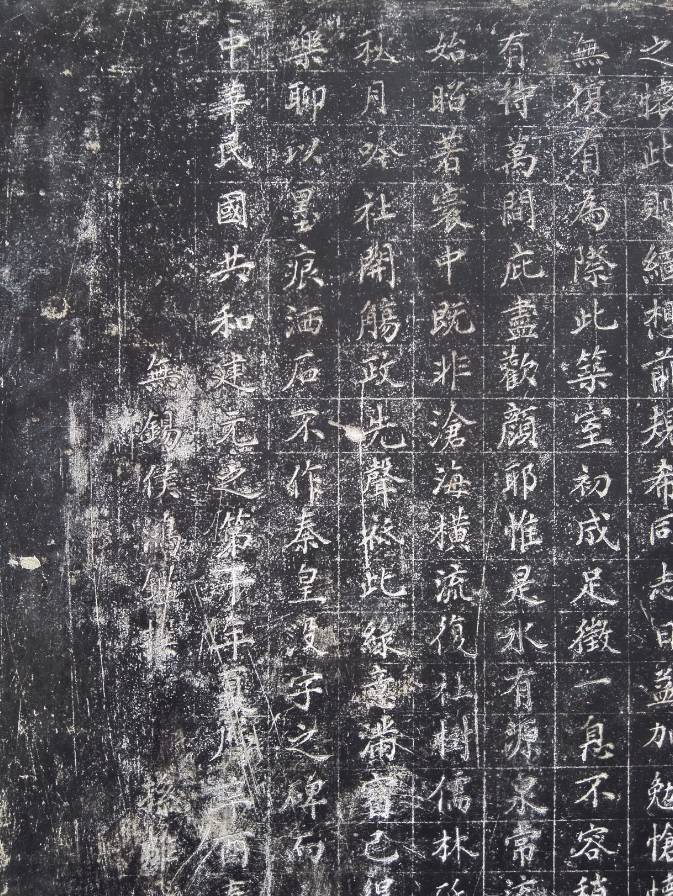 之懷此則緬想前規希同志日益加勉愴懷
無復有為際此築室初成足徵一息不容稍
有待萬間庇盡歡顏耶惟是水有源泉常流
始昭著寰中既非滄海橫流復社樹儒林
秋月吟社開觴政先聲從此綠意滿窗已得
樂聊以墨痕洒石不作秦皇沒字之碑而
中華民國共和建元之第十年夏歷辛酉春
無錫侯鴻鑑撰 孫